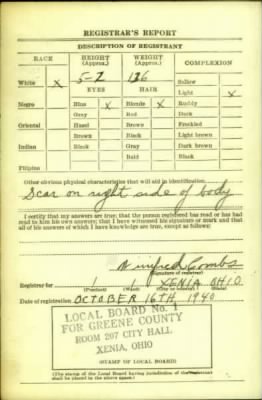 REGISTRAR'S REPORT
DESCRIPTION OF REGISTRANT
RACE HEIGHT (Approx.) WEIGHT (Approx.) COMPLEXION
5-7 136 Sallow
White X EYES HAIR Light X
Negro Blue X Blonde X Ruddy
Gray Red Dark
Oriental Hazel Brown Freckled
Brown Black Light brown
Indian Black Gray Dark brown
Bald Black
Filipino
Other obvious physical characteristics that will aid in identification
Scar on right side of body
I certify that my answers are true; that the person registered has read or has had read to him his own answers; that I have witnessed his signature or mark and that all of his answers of which I have knowledge are true, except as follows:
Winifred Combs
(Signature of registrar)
Registrar for 1 XENIA OHIO
Date of registration OCTOBER 16TH 1940
LOCAL BOARD No. 1
FOR GREENE COUNTY
ROOM 207 CITY HALL
XENIA, OHIO
(STAMP OF LOCAL BOARD)
(The stamp of the Local Board having jurisdiction of the registrant
shall be placed in the above space.)